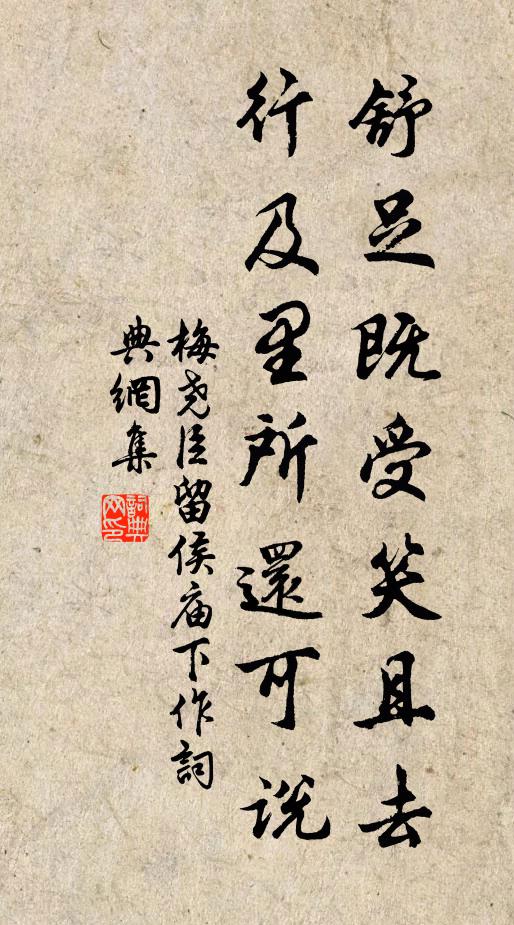 舒足既受笑且去
行及里所還可说
梅尧臣留侯庙下作詞
典網集
詞典网印